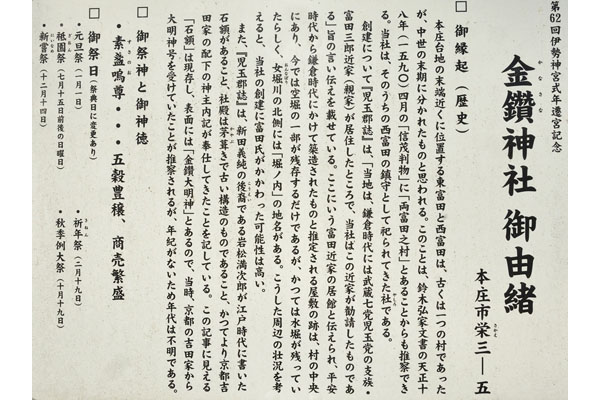 第62回伊勢神宮式年遷宮記念
金鑽神社 御由緒
かなさな
本庄市栄三―五
さかえ
□ 御縁起(歴史)
本庄台地の末端近くに位置する東富田と西富田は、古くは一つの村であった
が、中世の末期に分かれたものと思われる。このことは、鈴木弘家文書の天正十
八年(一五九〇)四月の「信茂判物」に「両富田之村」とあることからも推察でき
る。当社は、そのうちの西富田の鎮守として祀られてきた社である。
創建について『児玉郡誌』は、「当地は、鎌倉時代には武蔵七党児玉党の支族・
富田三郎近家(親家)が居住したところで、当社はこの近家が勧請したものであ
る」旨の言い伝えを載せている。ここにいう富田近家の居館と伝えられ、平安
時代から鎌倉時代にかけて築造されたものと推定される屋敷の跡は、村の中央
にあり、今では空堀の一部が残存するだけであるが、かつては水堀が残ってい
たらしく、女堀川の北側には「堀ノ内」の地名がある。こうした周辺の状況を考
えると、当社の創建に富田氏がかかわった可能性は高い。
また、『児玉郡誌』は、新田義純の後裔である岩松満次郎が江戸時代に書いた
石額があること、社殿は茅葺きで古い構造のものであること、かつてより京都吉
田家の配下の神主内記が奉仕してきたことを記している。この記事に見える
「石額」は現存し、表面には「金鑽大明神」とあるので、当時、京都の吉田家から
大明神号を受けていたことが推察されるが、年紀がないため年代は不明である。
□ 御祭神と御神徳
・素盞嗚尊・・・五穀豊穣、商売繁盛
すさのお
□ 御祭日(祭典日に変更あり)
・元旦祭(一月一日) ・祈年祭(二月十九日)
・祇園祭(七月十五日前後の日曜日) ・秋季例大祭(十月十九日)
・新嘗祭(十二月十四日)